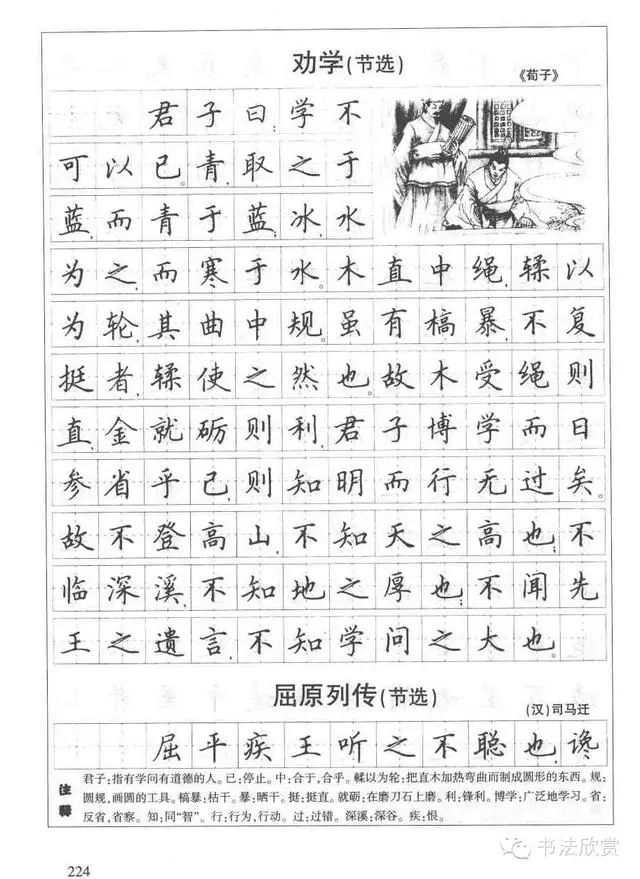 劝学(节选)
《荀子》
君子曰:学不
可以已。青,取之于
蓝,而青于蓝;冰,水
为之,而寒于水。木直中绳,輮以
为轮,其曲中规。虽有槁暴,不复
挺者,輮使之然也。故木受绳则
直,金就砺则利,君子博学而日
参省乎己,则知明而行无过矣。
故不登高山,不知天之高也;不
临深溪,不知地之厚也;不闻先
王之遗言,不知学问之大也。
屈原列传(节选)
(汉)司马迁
屈平疾王听之不聪也,谗
注释
君子:指有学问有道德的人。已:停止。中:合于,合乎。輮以为轮:把直木加热弯曲而制成圆形的东西。规:
圆规,画圆的工具。槁暴:枯干。暴:晒干。挺:挺直。就砺:在磨刀石上磨。利:锋利。博学:广泛地学习。省:
反省,省察。知:同“智”。行:行为,行动。过:过错。深溪:深谷。疾:恨。
224
书法欣赏